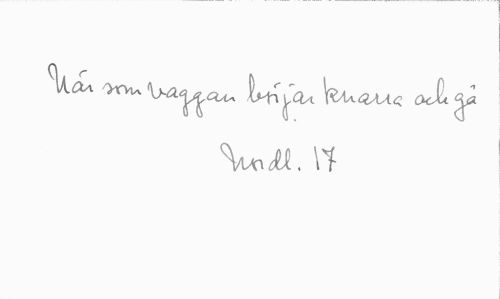 När som vaggan börjar knarra och gå
Nordl. 17